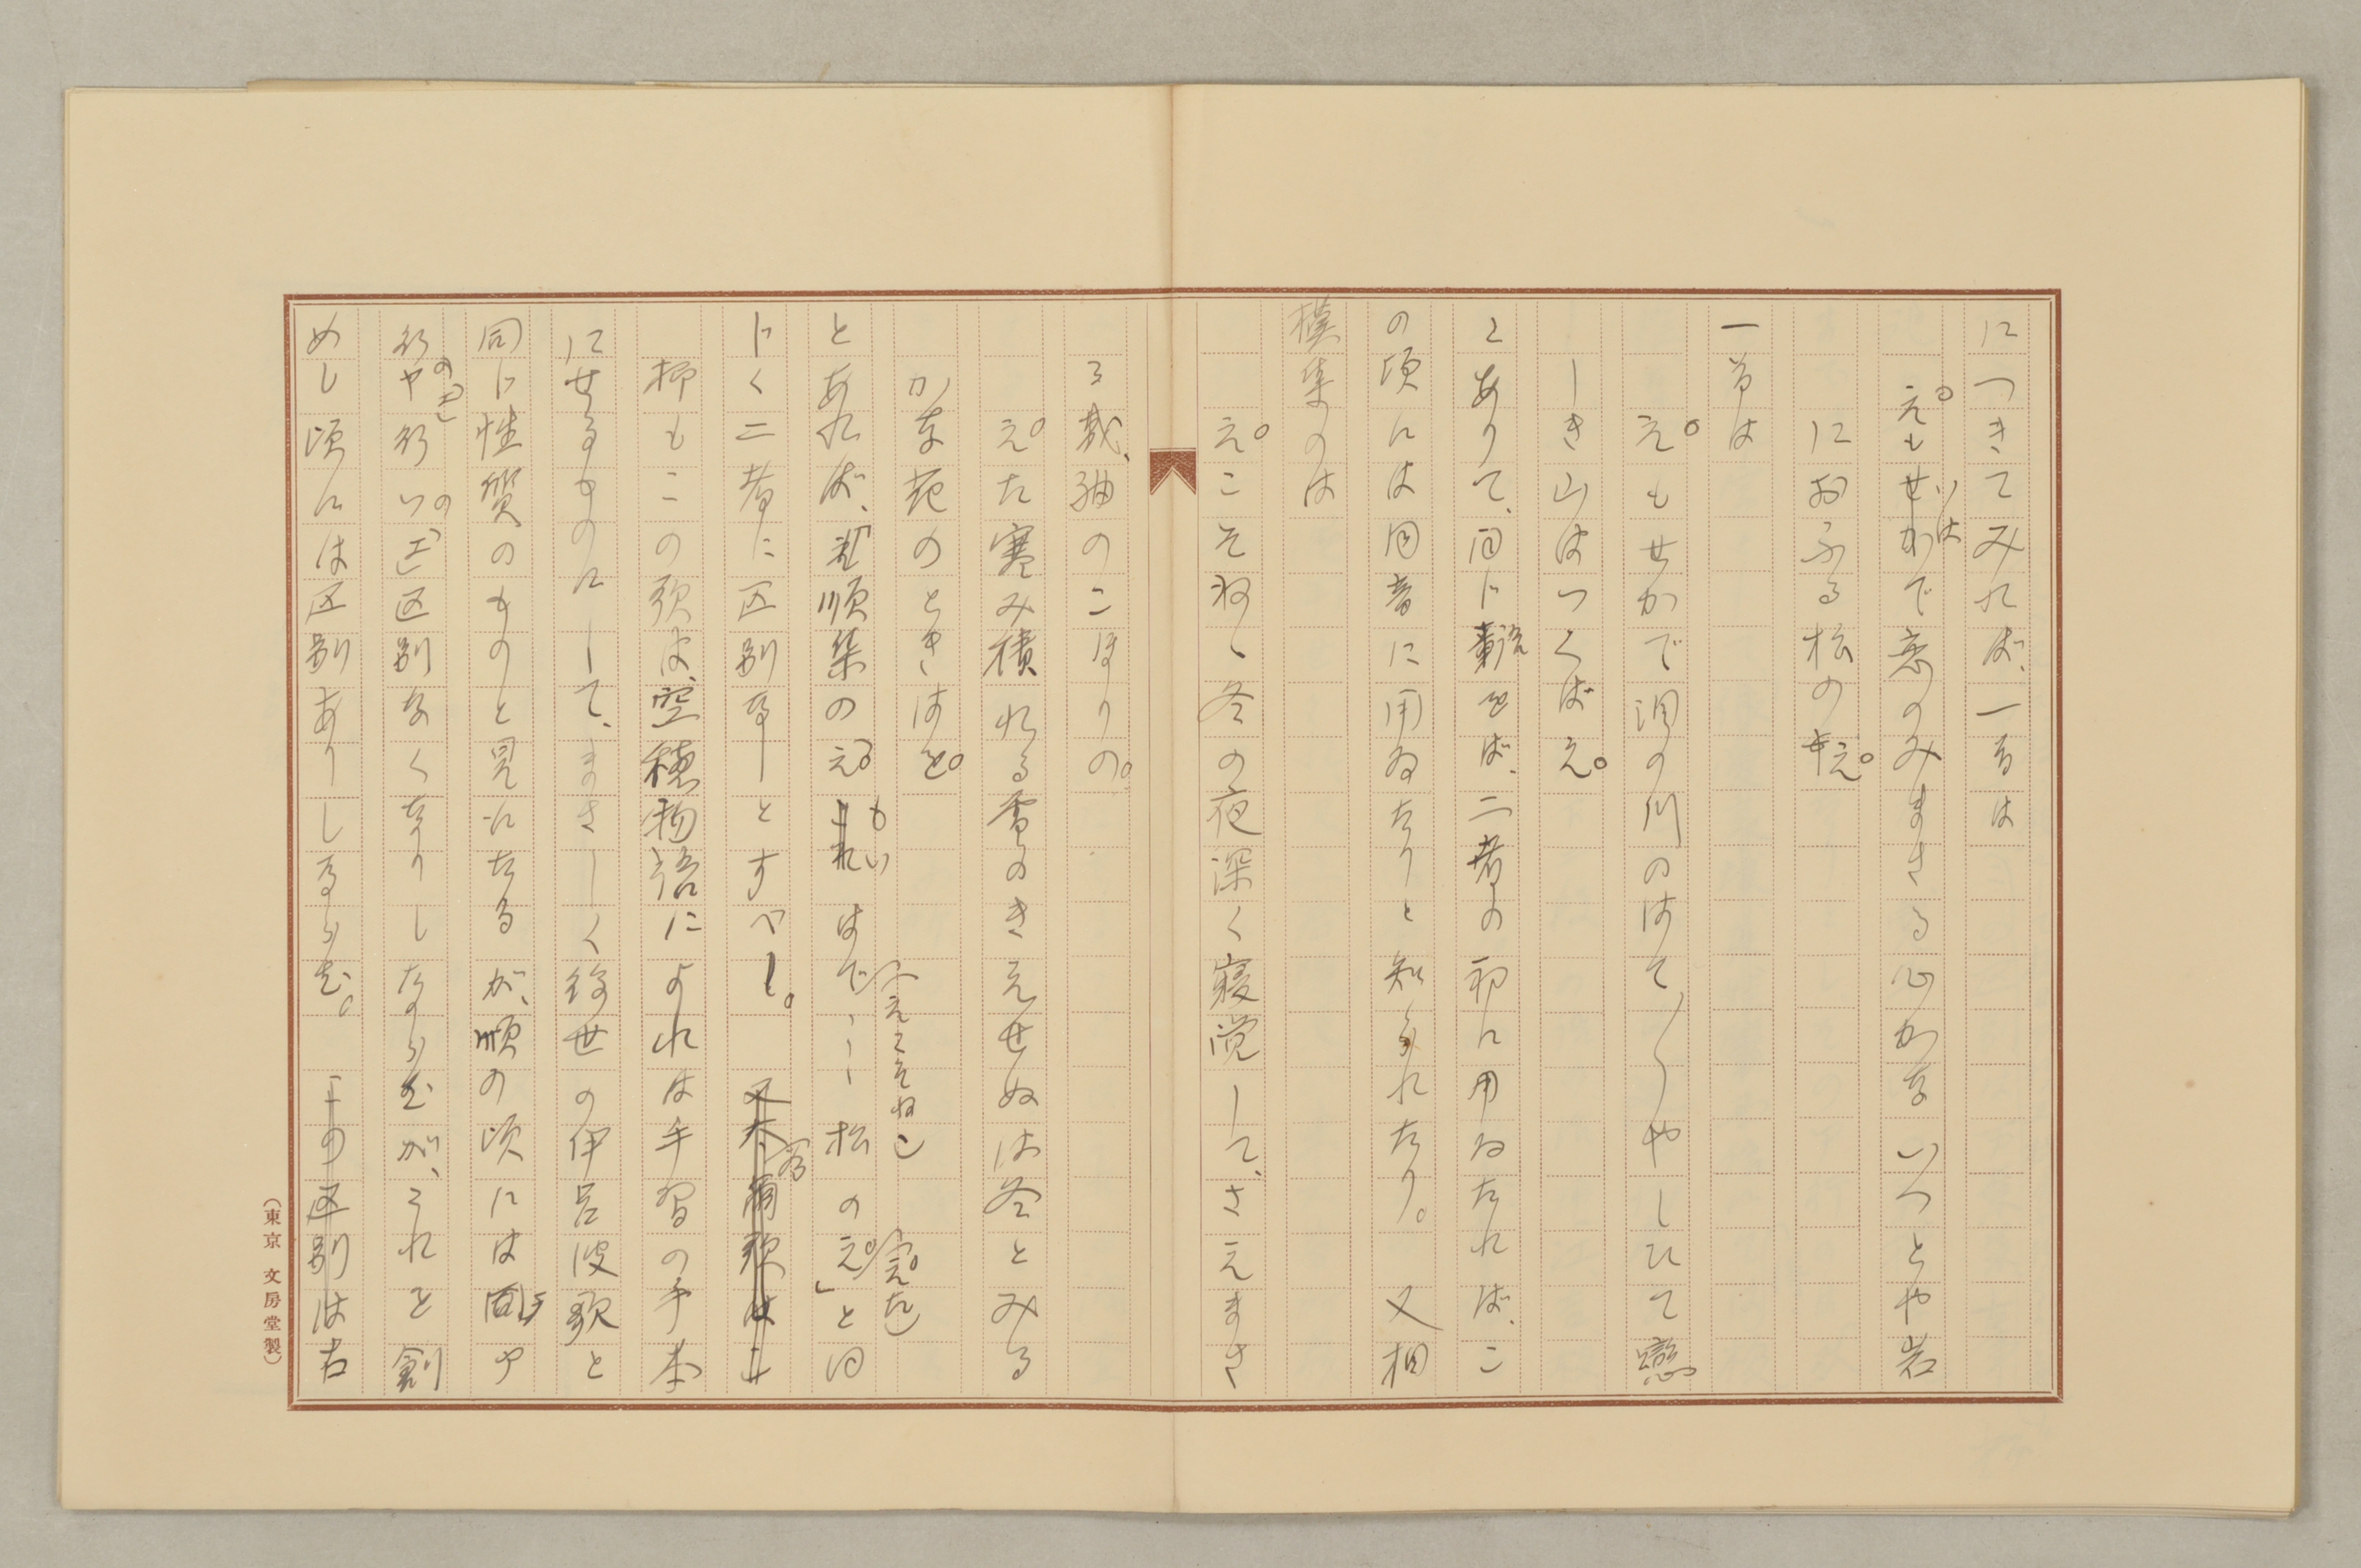 につきてみれば、一首は
えもせかで恋のみまさる心かないつとや岩
いは
におふる松のえ
一首は
えもせかで涙の川のはて〳〵やしひて戀
しき山はつくばえ
とありて、同じ語をば、二者の初に用ゐたれば、こ
の頃には同音に用ゐたりと知られたり。 又相
模集のは
えこそねね冬の夜深く寝覚して、さえまさ
る哉、袖のこほりの
えた寒み積れる雪のきえせぬは冬とみる
かな花のときはを
(えこそねね) (寒た)
とあれば、「順集のえもいはで……松のえ」と同
じく二者に区別なしとすべし。
抑もこの歌は、空穂物語によれは手習の手本
にせるものにして、まさしく後世の伊呂波歌と
同じ性質のものと見にたるが、順の頃には同じア
行ヤ行の区別なくなりしなららむが、これを創
めし頃には区別ありしならむ。 この区別は古
(東京 文房堂製)